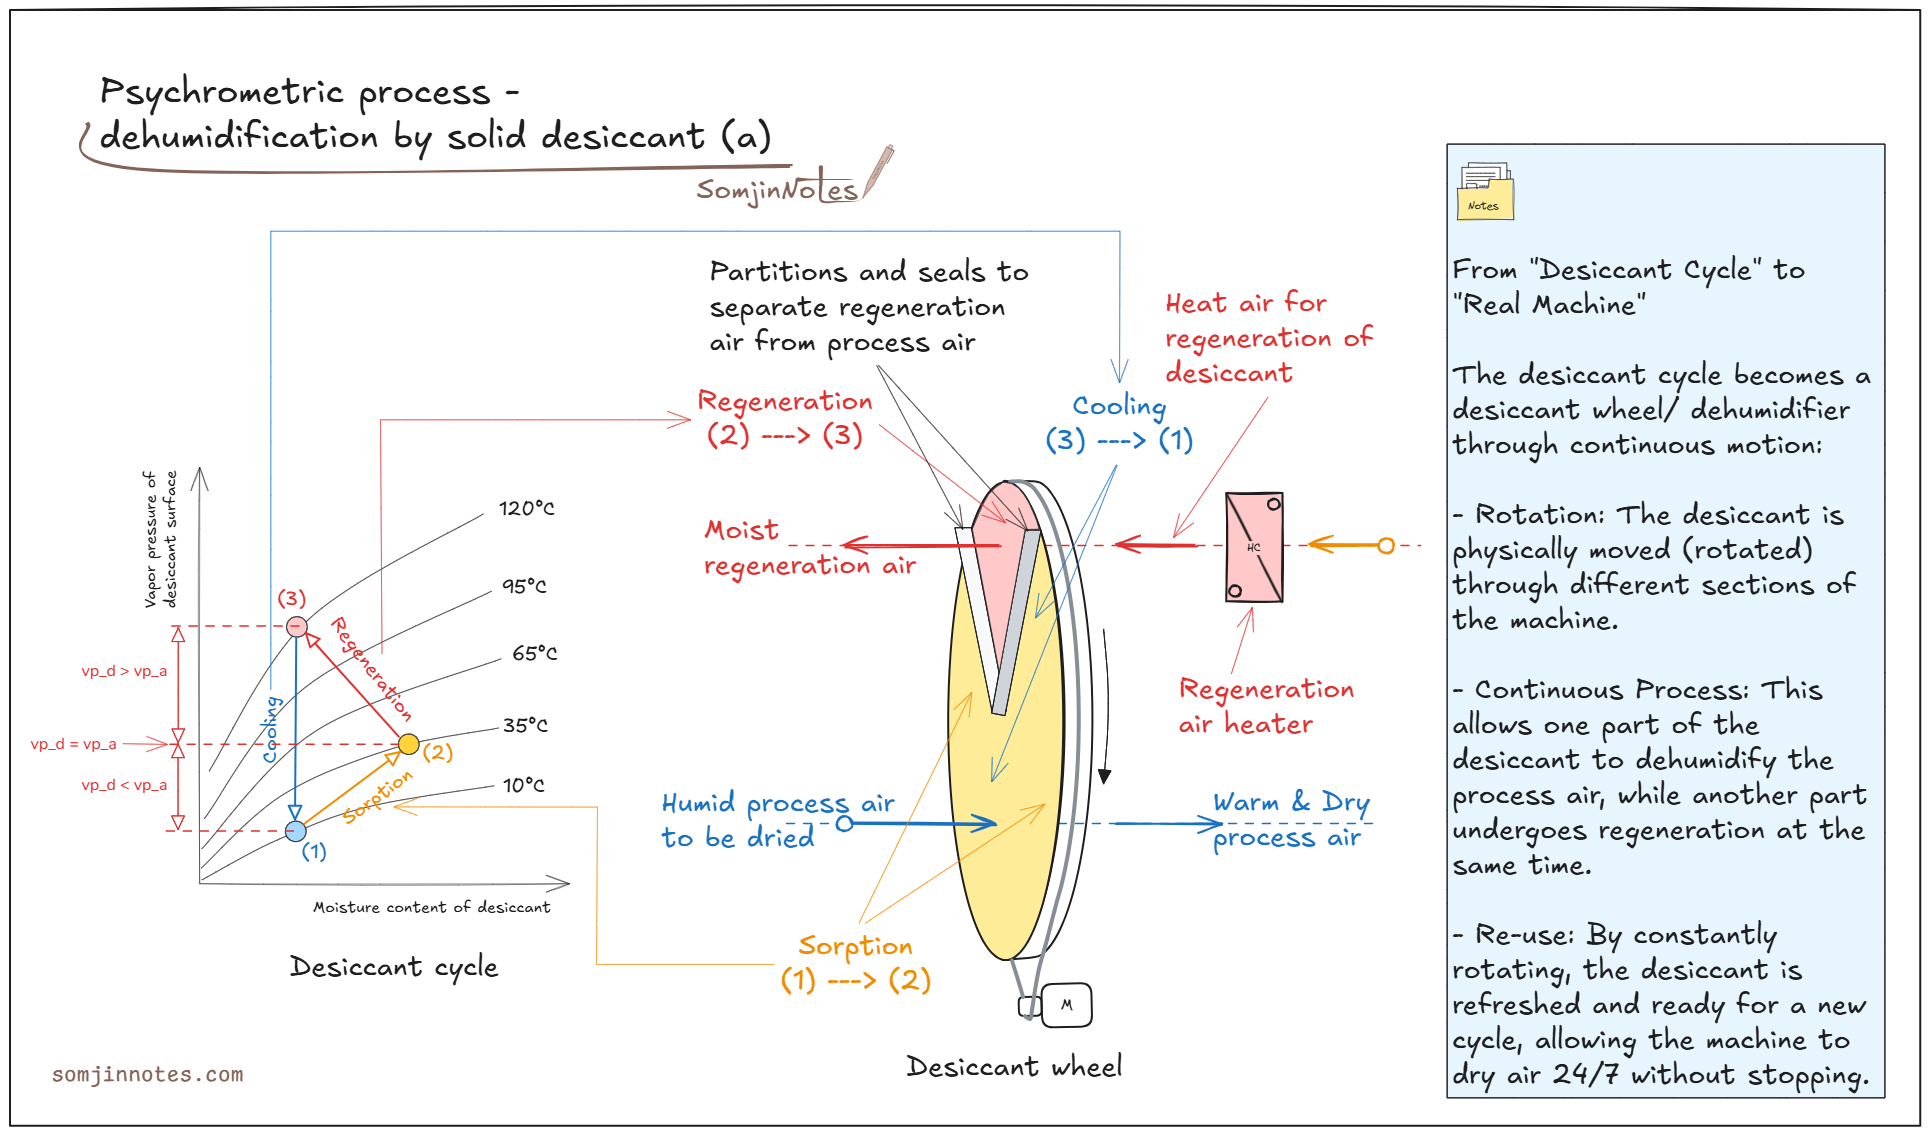 Psychrometric process -
dehumidification by solid desiccant (a)
SomjinNotes
Partitions and seals to
separate regeneration
air from process air
Heat air for
regeneration of
desiccant
Regeneration
(2) ---> (3)
Cooling
(3) ---> (1)
Moist
regeneration air
HC
Regeneration
air heater
Humid process air
to be dried
Warm & Dry
process air
Sorption
(1) ---> (2)
M
Desiccant wheel
Vapor pressure of
desiccant surface
120°C
95°C
65°C
35°C
10°C
(3)
Regeneration
Cooling
(2)
Sorption
(1)
vp_d > vp_a
vp_d = vp_a
vp_d < vp_a
Moisture content of desiccant
Desiccant cycle
somjinnotes.com
Notes
From "Desiccant Cycle" to
"Real Machine"
The desiccant cycle becomes a
desiccant wheel/ dehumidifier
through continuous motion:
- Rotation: The desiccant is
physically moved (rotated)
through different sections of
the machine.
- Continuous Process: This
allows one part of the
desiccant to dehumidify the
process air, while another part
undergoes regeneration at the
same time.
- Re-use: By constantly
rotating, the desiccant is
refreshed and ready for a new
cycle, allowing the machine to
dry air 24/7 without stopping.